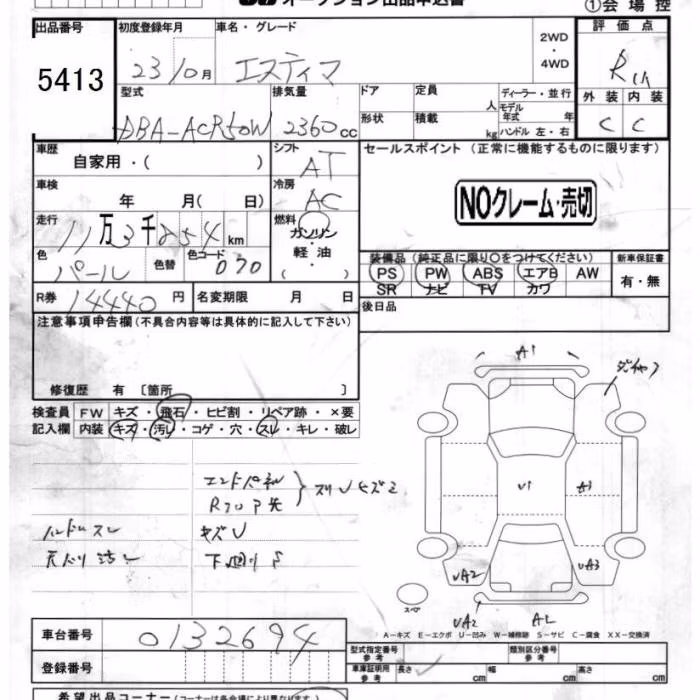 オークション出品申込書
①会場控
出品番号 初度登録年月 車名・グレード 2WD・4WD 評価点
5413 23/10月 エスティマ R
型式 排気量 ドア 定員 人 ディーラー・並行 外装 内装
DBA-ACR50W 2360cc 形状 積載 kg モデル年式 年 ハンドル 左・右 C C
車歴 自家用・( ) シフト AT セールスポイント (正常に機能するものに限ります)
車検 年 月( 日) 冷房 AC NOクレーム・売切
走行 11万3千254km 燃料 ガソリン・軽油・( )
色 パール 色替 色コード 070 装備品 (純正品に限り○をつけてください) 新車保証書
PS PW ABS エアB AW 有・無
SR ナビ TV カワ
R券 14440円 名変期限 月 日 後日品
注意事項申告欄 (不具合内容等は具体的に記入して下さい)
修復歴 有 〔箇所 〕
検査員 FW キズ・飛石・ヒビ割・リペア跡・×要
記入欄 内装 キズ・汚レ・コゲ・穴・スレ・キレ・破レ
A1
U1 A1
エンドパネル
キズU
ハンドルスレ
UA2 UA3
スペア
UA2 A2
A-キズ E-エクボ U-凹み W-補修跡 S-サビ C-腐食 XX-交換済
車台番号 0132694
型式指定番号 参考 類別区分番号 参考
登録番号 車庫証明用 参考 長さ cm 幅 cm 高さ cm
希望出品コーナー